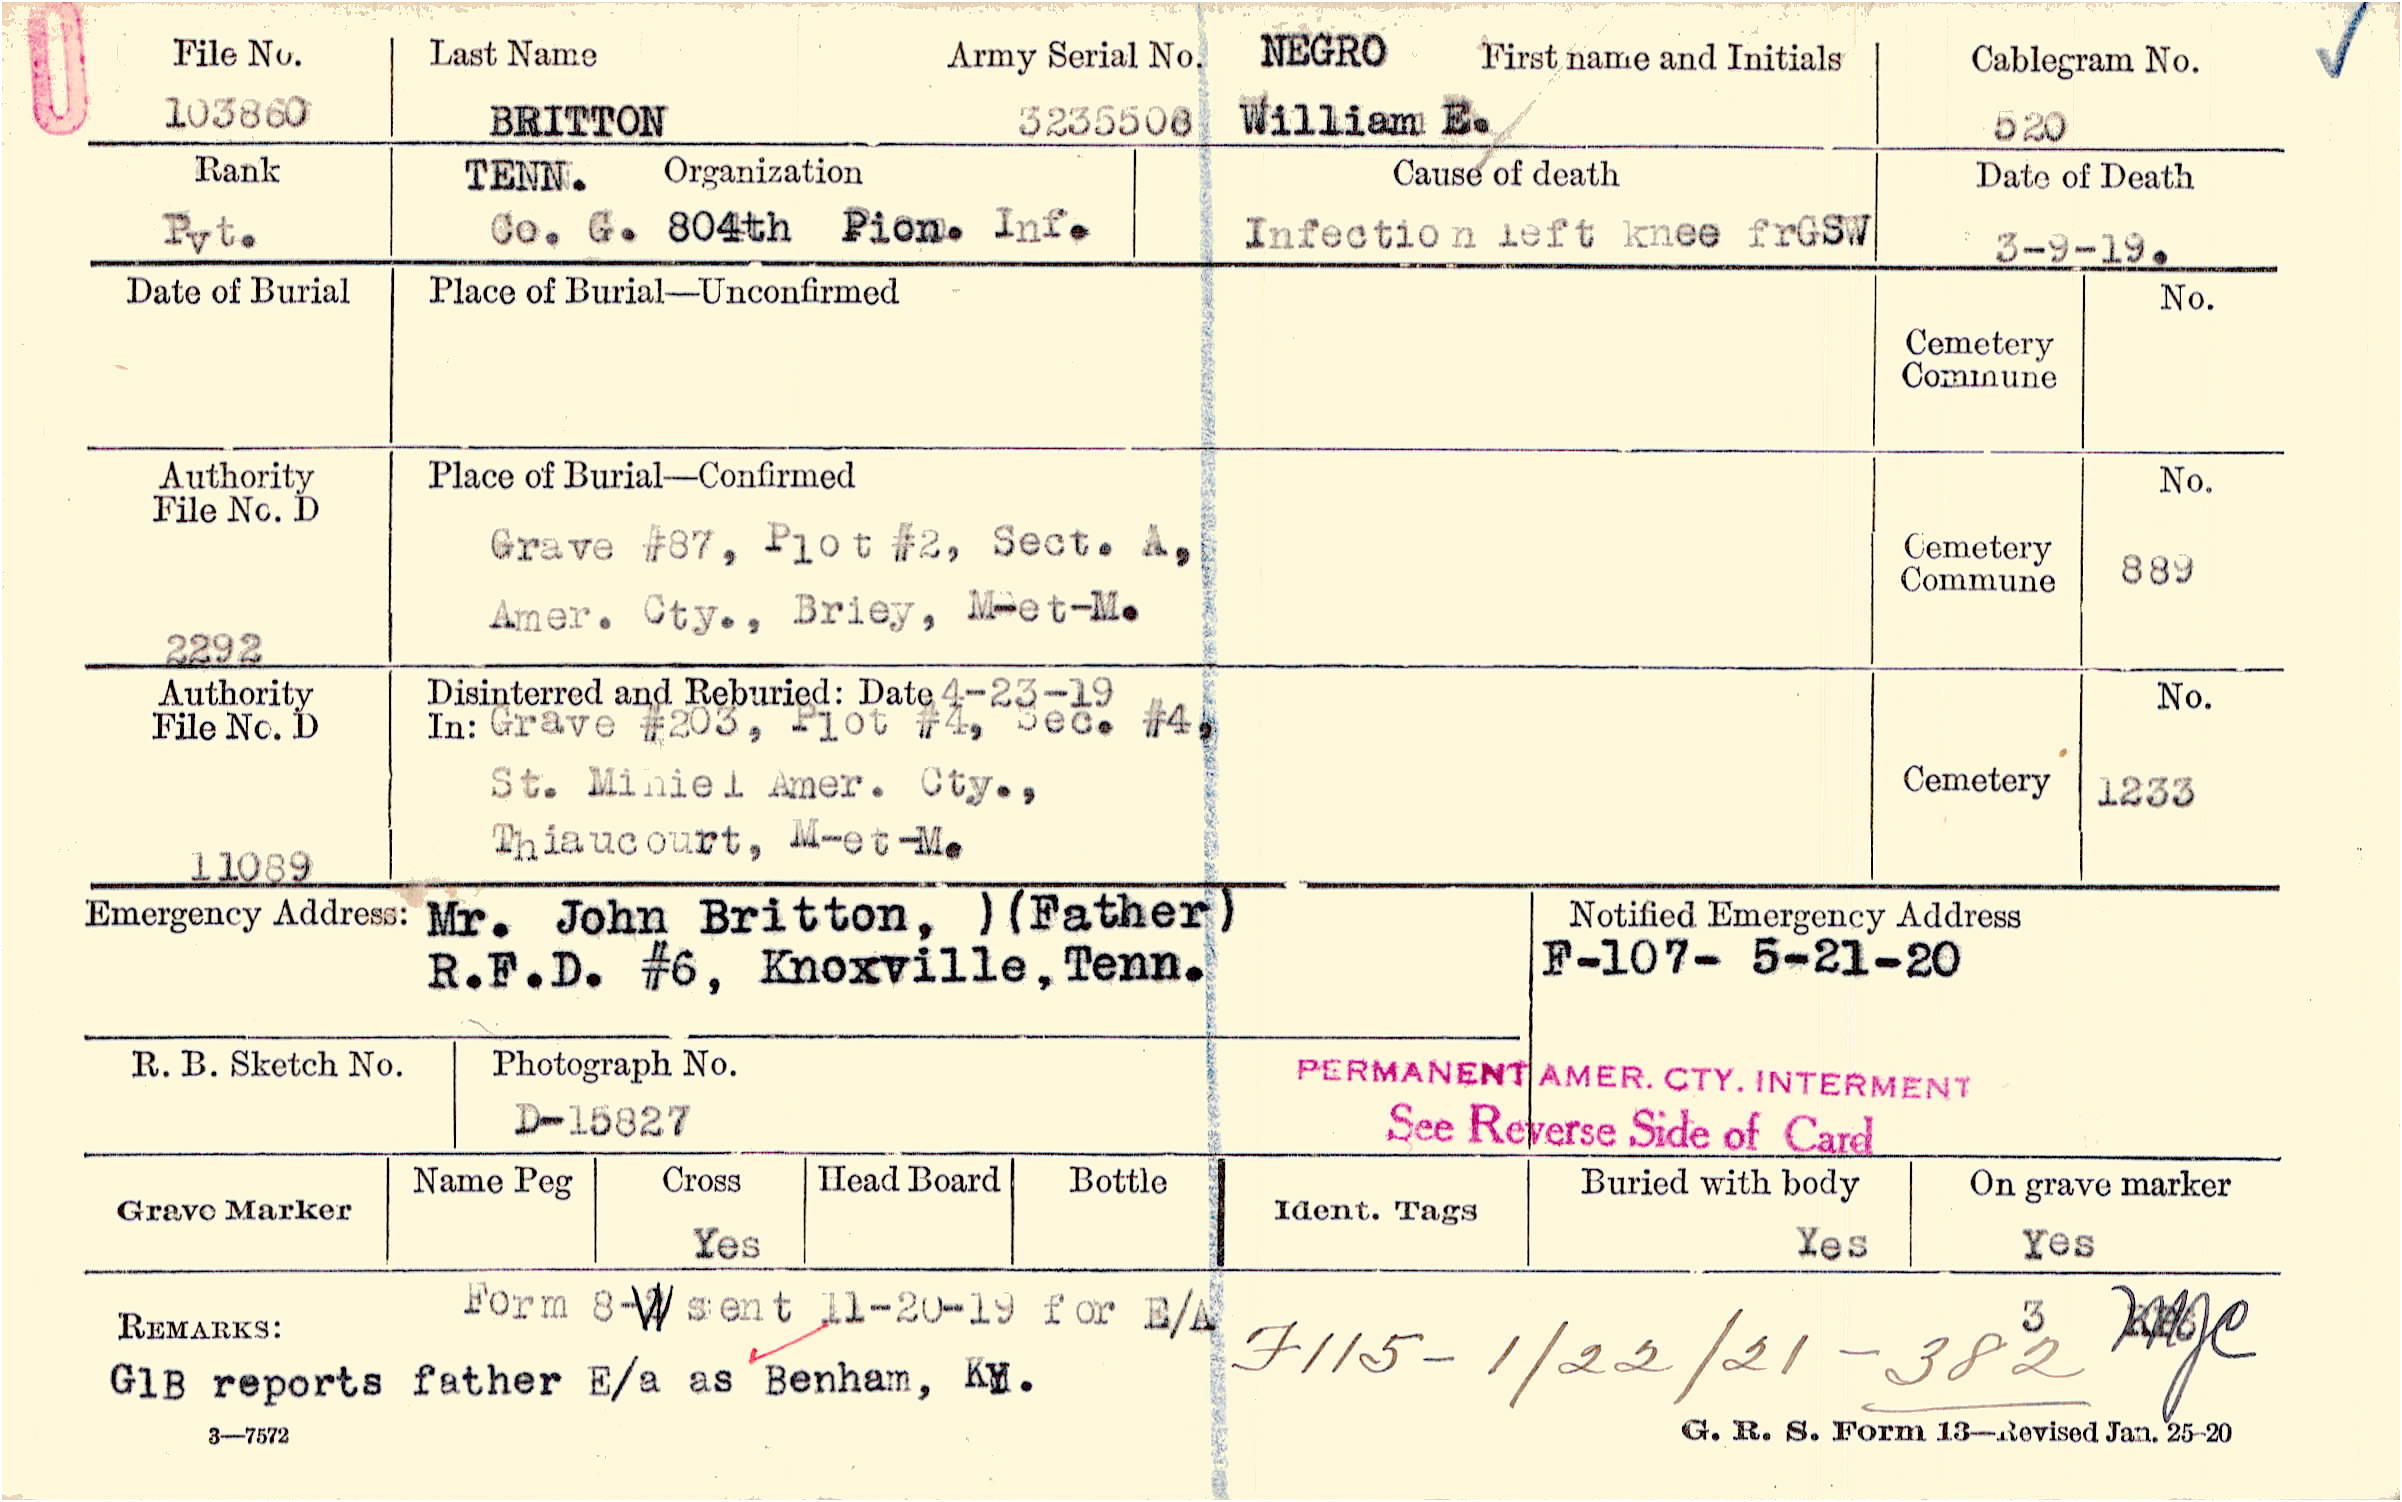 File No. Last Name Army Serial No. NEGRO First name and Initials Cablegram No.
103860 BRITTON 3235508 William E. 520
Rank TENN. Organization Cause of death Date of Death
Pvt. Co. G. 804th Pion. Inf. Infection left knee frGSW 3-9-19.
Date of Burial Place of Burial—Unconfirmed No.
Cemetery
Commune
Authority Place of Burial—Confirmed No.
File No. D
Grave #87, Plot #2, Sect. A,
Cemetery
Commune 889
Amer. Cty., Briey, M-et-M.
2292
Authority Disinterred and Reburied: Date 4-23-19 No.
File No. D In: Grave #203, Plot #4, Sec. #4,
St. Mihiel Amer. Cty., Cemetery 1233
Thiaucourt, M-et-M.
11089
Emergency Address: Mr. John Britton, )(Father) Notified Emergency Address
R.F.D. #6, Knoxville,Tenn. F-107- 5-21-20
R. B. Sketch No. Photograph No. PERMANENT AMER. CTY. INTERMENT
D-15827 See Reverse Side of Card
Grave Marker Name Peg Cross Head Board Bottle Ident. Tags Buried with body On grave marker
Yes Yes Yes
Form 8-W sent 11-20-19 for E/A 3
REMARKS: F115- 1/22/21 - 382
G1B reports father E/a as Benham, KY.
3—7572 G. R. S. Form 13—Revised Jan. 25-20